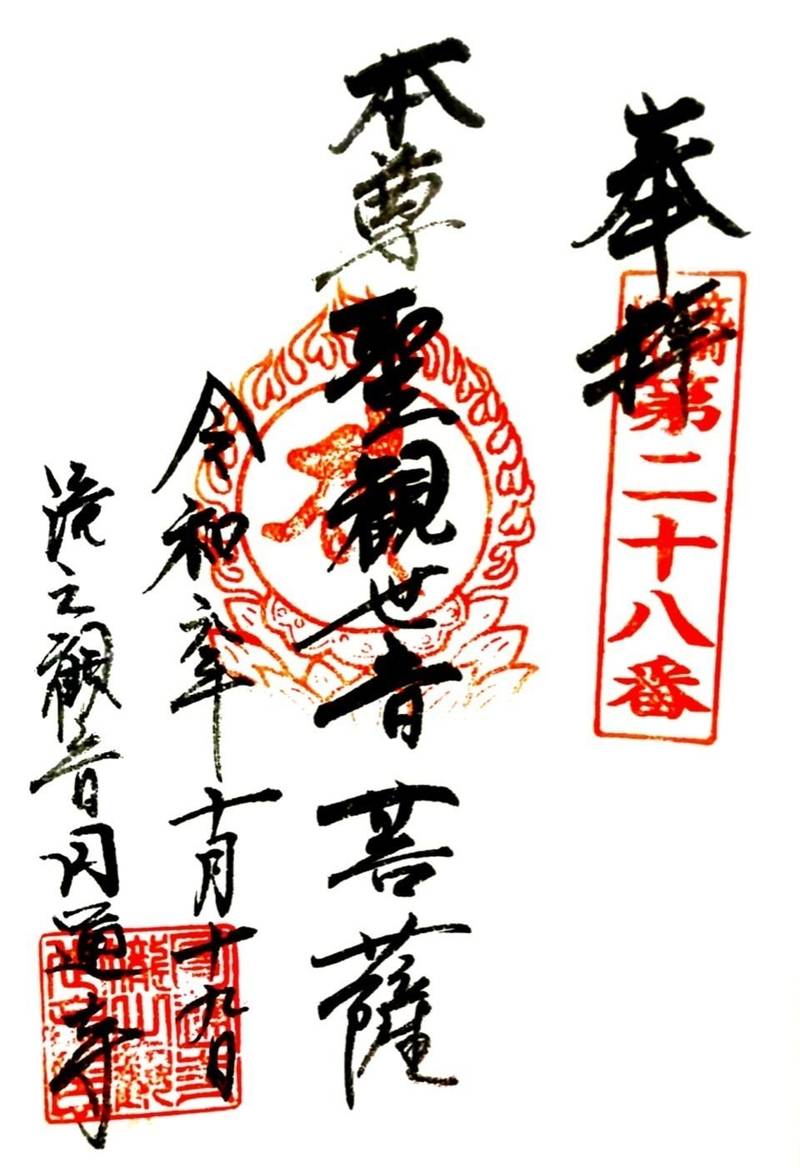 奉拝
第二十八番
本尊聖観世音菩薩
令和元年十月十九日
滝之観音円通寺